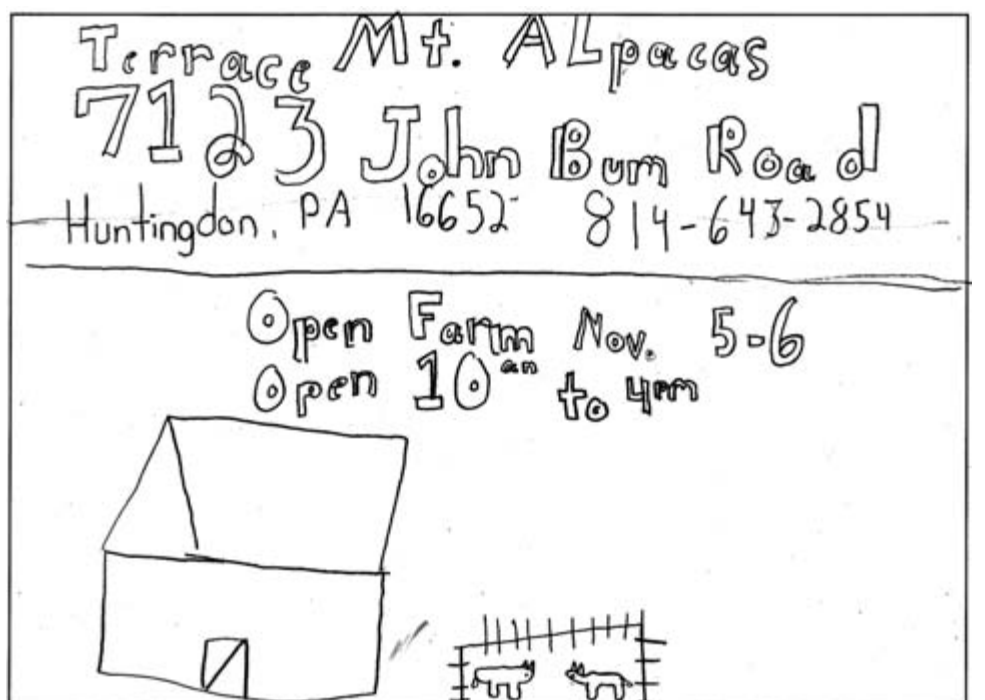 Terrace Mt. ALpacas
7123 John Bum Road
Huntingdon, PA 16652 814-643-2854
Open Farm Nov. 5-6
Open 10 am to 4pm